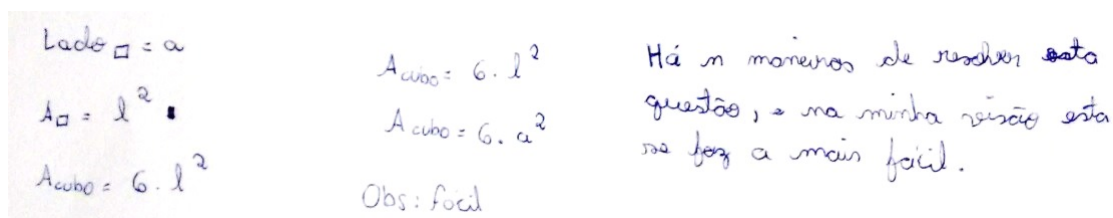 Lado □ = a
A□ = l²
Acubo = 6 . l²
Acubo = 6 . l²
Acubo = 6 . a²
Obs: Fácil
Há n maneiras de resolver esta
questão, e na minha visão esta
se faz a mais fácil.